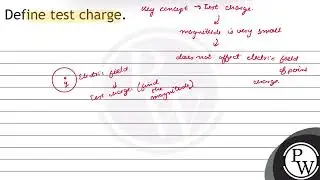 Define test charge.
Key concept → Test charge.
magnitude is very small
does not affect electric field
of point
charge
Electric field
q
Test charge (find
the
magnitude)
PW